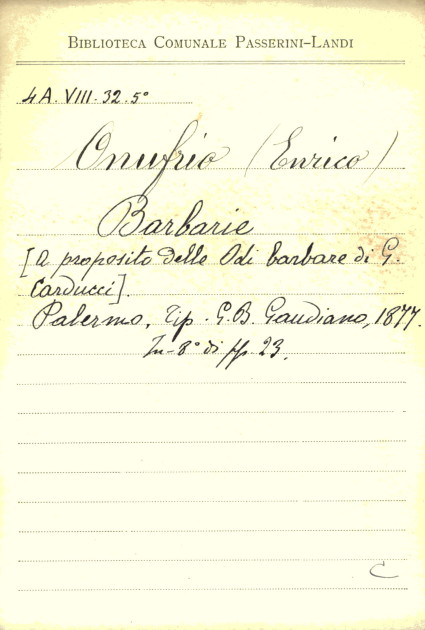 BIBLIOTECA COMUNALE PASSERINI-LANDI
4A.VIII.32.5°
Onufrio (Enrico)
Barbarie
[A proposito delle Odi barbare di G.
Carducci].
Palermo, Tip. G.B. Gaudiano, 1877.
In-8° di pp. 23.
C